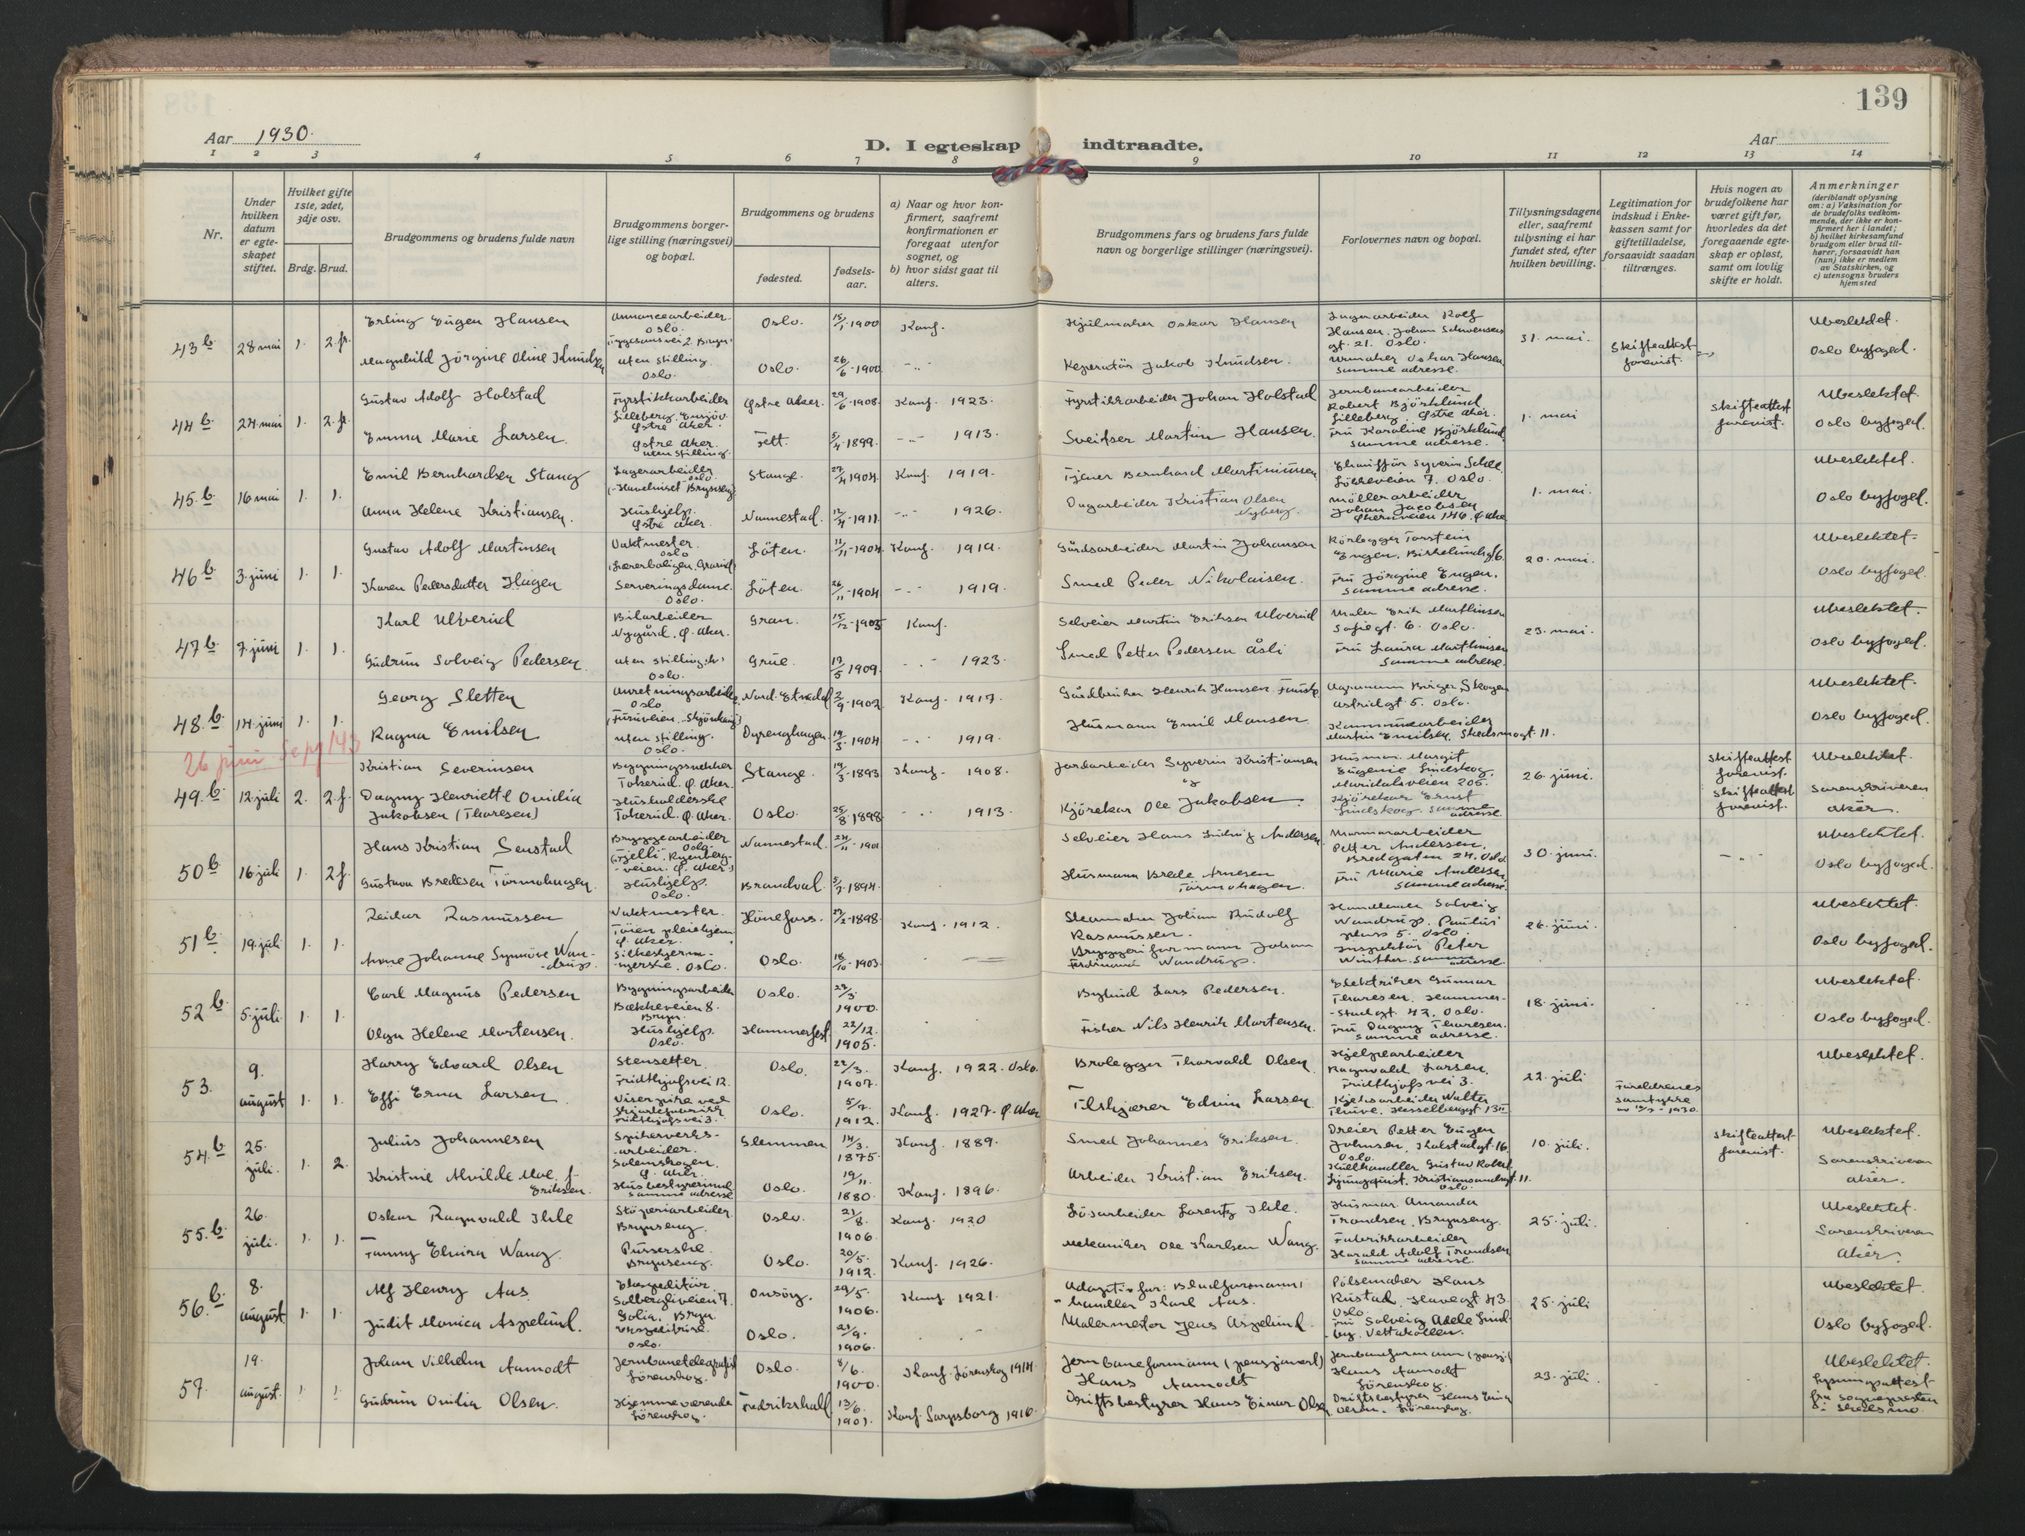 139
Aar 1930.
D. I egteskap indtraadte.
Aar
1 2 3 4 5 6 7 8 9 10 11 12 13 14
Nr.
Under hvilken datum er egteskapet stiftet.
Hvilket gifte 1ste, 2det, 3dje osv.
Brdg. Brud.
Brudgommens og brudens fulde navn
Brudgommens borgerlige stilling (næringsvei) og bopæl.
Brudgommens og brudens
fødested.
fødselsaar.
a) Naar og hvor konfirmert, saafremt konfirmationen er foregaat utenfor sognet, og
b) hvor sidst gaat til alters.
Brudgommens fars og brudens fars fulde navn og borgerlige stillinger (næringsvei).
Forlovernes navn og bopæl.
Tillysningsdagene eller, saafremt tillysning ei har fundet sted, efter hvilken bevilling.
Legitimation for indskud i Enkekassen samt for giftetilladelse, forsaavidt saadan tiltrænges.
Hvis nogen av brudefolkene har været gift før, hvorledes da det foregaaende egteskap er opløst, samt om lovlig skifte er holdt.
Anmerkninger (deriblandt oplysning om: a) Vaksination for de brudefolks vedkommende, der ikke er konfirmert her i landet; b) hvilket kirkesamfund brudgom eller brud tilhører, forsaavidt han (hun) ikke er medlem av Statskirken, og c) utensogns bruders hjemsted
43 b 28 mai 1. 2. fr. Erling Eugen Hansen Oslo. 15/1-1900 Konf. Hjulmaker Oskar Hansen 31. mai. Skifteattest forevist. Ubeslektet.
Magnhild Jörgine Oline Knudsen uten stilling Oslo. Oslo. 26/6-1900 Reperatör Jakob Knudsen Urmaker Oskar Hansen samme adresse. Oslo byfoged.
44 b 24 mai 1. 2. fr. Gustav Adolf Holstad Fyrstikkarbeider Östre Aker. 29/6-1908. Konf. 1923. Fyrstikkarbeider Johan Holstad Jernbanearbeider Robert Björklund Lilleberg Östre Aker. 1. mai Skifteattest forevist. Ubeslektet.
Emma Marie Larsen. Östre Aker. uten stilling. Fett. 5/4-1899. 1913. Sveitser Martin Hansen. Fru Karoline Björklund, samme adresse. Oslo byfoged.
45. b 16 mai 1. 1. Emil Bernhardsen Stang Lagerarbeider Oslo Stange. 27/4-1904. Konf. 1919. Tjener Bernhard Martiniussen 1. mai. Ubeslektet.
Anna Helene Kristiansen. Hushjelp. Östre Aker. Nannestad. 12/4-1911. 1926. Dagarbeider Kristian Olsen Nyberg. Möllerarbeider Johan Jacobsen Oslo byfoged.
46 b 3. juni 1. 1. Gustav Adolf Martinsen Vaktmester. Oslo Löten. 11/11-1904 Konf. 1919. Gårdsarbeider Martin Johansen Rörlegger Torstein Engen, 20. mai. Ubeslektet.
Karen Pedersdatter Hagen Serveringsdame. Oslo. Löten. 26/11-1904 1919. Smed Peder Nikolaisen. Fru Jörgine Engen. samme adresse. Oslo byfoged.
47 b 7. juni 1. 1. Karl Ulverud Bilarbeider Nygård. Ö. Aker. Gran. 15/12-1905 Konf. Selveier Martin Eriksen Ulverud Maler Erik Martinsen Sofiegt. 6. Oslo. 23. mai. Ubeslektet.
Gudrun Solveig Pedersen. uten stilling. Oslo. Grue. 17/5-1909. 1923. Smed Petter Pedersen Åsli Fru Laura Martinsen samme adresse. Oslo byfoged.
48. b 14. juni 1. 1. Georg Sletten Oslo. 2/9-1902 Konf. 1917. Birger Skogen Astridgt. 5. Oslo. Ubeslektet.
Ragna Emilsen uten stilling. Oslo. 19/5-1904 1919. Husmann Emil Hansen Kommunearbeider Martin Emilsen, Skedsmogt. 11. Oslo byfoged.
26 juni Se pg 143
49. b 12. juli 2. 2. f. Kristian Severinsen Bygningssnekker Tokerud. Ö. Aker. Stange. 19/3-1893 Konf. 1908. Jordarbeider Syverin Kristiansen Husmor Margit Eugenie Lindskog, Maridalsveien 205. 26. juni. Skifteattest forevist. Ubeslektet.
Dagny Henriette Ovidia Jakobsen (Thoresen) Husholderske Tokerud. Ö. Aker. Oslo. 25/8-1898 1913. Kjörekar Ole Jakobsen Kjörekar Ernst Lindskog samme adresse. Skifteattest forevist. Sorenskriveren Aker.
50 b 16 juli 1. 2 f. Hans Kristian Senstad Bryggearbeider Oslo Nannestad. 24/11-1901 Selveier Hans Ludvig Andersen Marmorarbeider Petter Andersen, Bredgaten 24, Oslo 30. juni. Ubeslektet.
Gustava Bredesen Törmohagen. Hushjelp. Oslo. Brandval. 5/7-1894. Husmann Brede Arnesen Törmohagen. Fru Marie Andersen, samme adresse. Oslo byfoged.
51 b 19. juli 1. 1. Reidar Rasmussen Vaktmester. Töien pleiehjem Ö. Aker. Hönefoss. 27/2-1898 Konf. 1912. Johan Rudolf Rasmussen. Solveig Wandrup. Paulus plass 5. Oslo. 26. juni Ubeslektet.
Anne Johanne Synnöve Wandrup. Oslo. Oslo. 18/10-1903. Bryggeriformann Johan Ferdinand Wandrup. Inspektör Peter Winther. samme adresse. Oslo byfoged.
52 b. 5. juli. 1. 1. Carl Magnus Pedersen Bygningsarbeider Bekkeveien 8. Bryn Oslo. 27/3. 1900. Bybud Lars Pedersen. Elektriker Gunnar Thoresen, 42, Oslo. 18. juni. Ubeslektet.
Olga Helene Mortensen. Hushjelp. Oslo. Hammerfest. 22/12. 1905. Fisker Nils Henrik Mortensen. Fru Dagny Thoresen. samme adresse. Oslo byfoged.
53. 9. august 1. 1. Harry Edvard Olsen Stensetter. Fridthjofsvei 12. Oslo. 22/3. 1907. Konf. 1922. Oslo. Brolegger Thorvald Olsen. Hjelpearbeider Ragnvald Larsen, Fridthjofsvei 3. 22. juli Foreldrenes samtykke Ubeslektet.
Effi Erna Larsen Fridthjofsvei 3. Oslo. 5/7. 1912. Konf. 1927. Ö. Aker Tilskjærer Edvin Larsen.
54. b 25. juli. 1. 2. Julius Johannesen Spikerverksarbeider. Glemmen 14/3. 1875. Konf. 1889. Smed Johannes Eriksen. Dreier Petter Eugen Johnsen, Oslo. 10. juli. Skifteattest forevist. Ubeslektet.
Kristine Alvilde Moe, f. Eriksen. Husbestyrerinne samme adresse Oslo. 19/11. 1880. Konf. 1896. Arbeider Kristian Eriksen. Kulhandler Gustav Robert Oslo. Sorenskriveren Aker.
55. b 26. juli. 1. 1. Oskar Ragnvald Ihle Stöperiarbeider Brynseng. Oslo. 21/8. 1906. Konf. 1920 Lösarbeider Lorentz Ihle. Husmor Amanda Trondsen, Brynseng. 25. juli. Ubeslektet.
Fanny Elvira Wang. Pusserske. Brynseng. Oslo. 20/5. 1912. Konf. 1926. Mekaniker Ole Karlsen Wang. Fabrikkarbeider Harald Adolf Trondsen samme adresse. Sorenskriveren Aker.
56. b 8. august 1. 1. Alf Henry Aas Ekspeditör Solbergliveien 7. Bryn. Onsöy. 29/5. 1906. Konf. 1921. Karl Aas. Pölsemaker Hans Rustad, 43 Oslo. 25. juli Ubeslektet.
Judit Monica Aspelund. Ekspeditrise. Oslo. Oslo. 21/9. 1906. Malermester Jens Aspelund. Fru Solveig Adele Lindby. Vettakollen. Oslo byfoged.
57. 19. august. 1. 1. Johan Vilhelm Aamodt Jernbanetelegrafist Lörenskog. Oslo. 8/6. 1900. Konf. Lörenskog 1914. Jernbaneformann (pensjonert) Hans Aamodt Jernbaneformann (pensj.) Hans Aamodt Lörenskog. 23. juli. Ubeslektet.
Gudrun Ovidia Olsen. Hjemmeværende Lörenskog. Fredrikshald 13/6. 1901. Konf. Sarpsborg 1916. Driftsbestyrer Hans Einar Olsen Driftsbestyrer Hans Einar Olsen. Lörenskog. Lysningsattest fra sogneprest